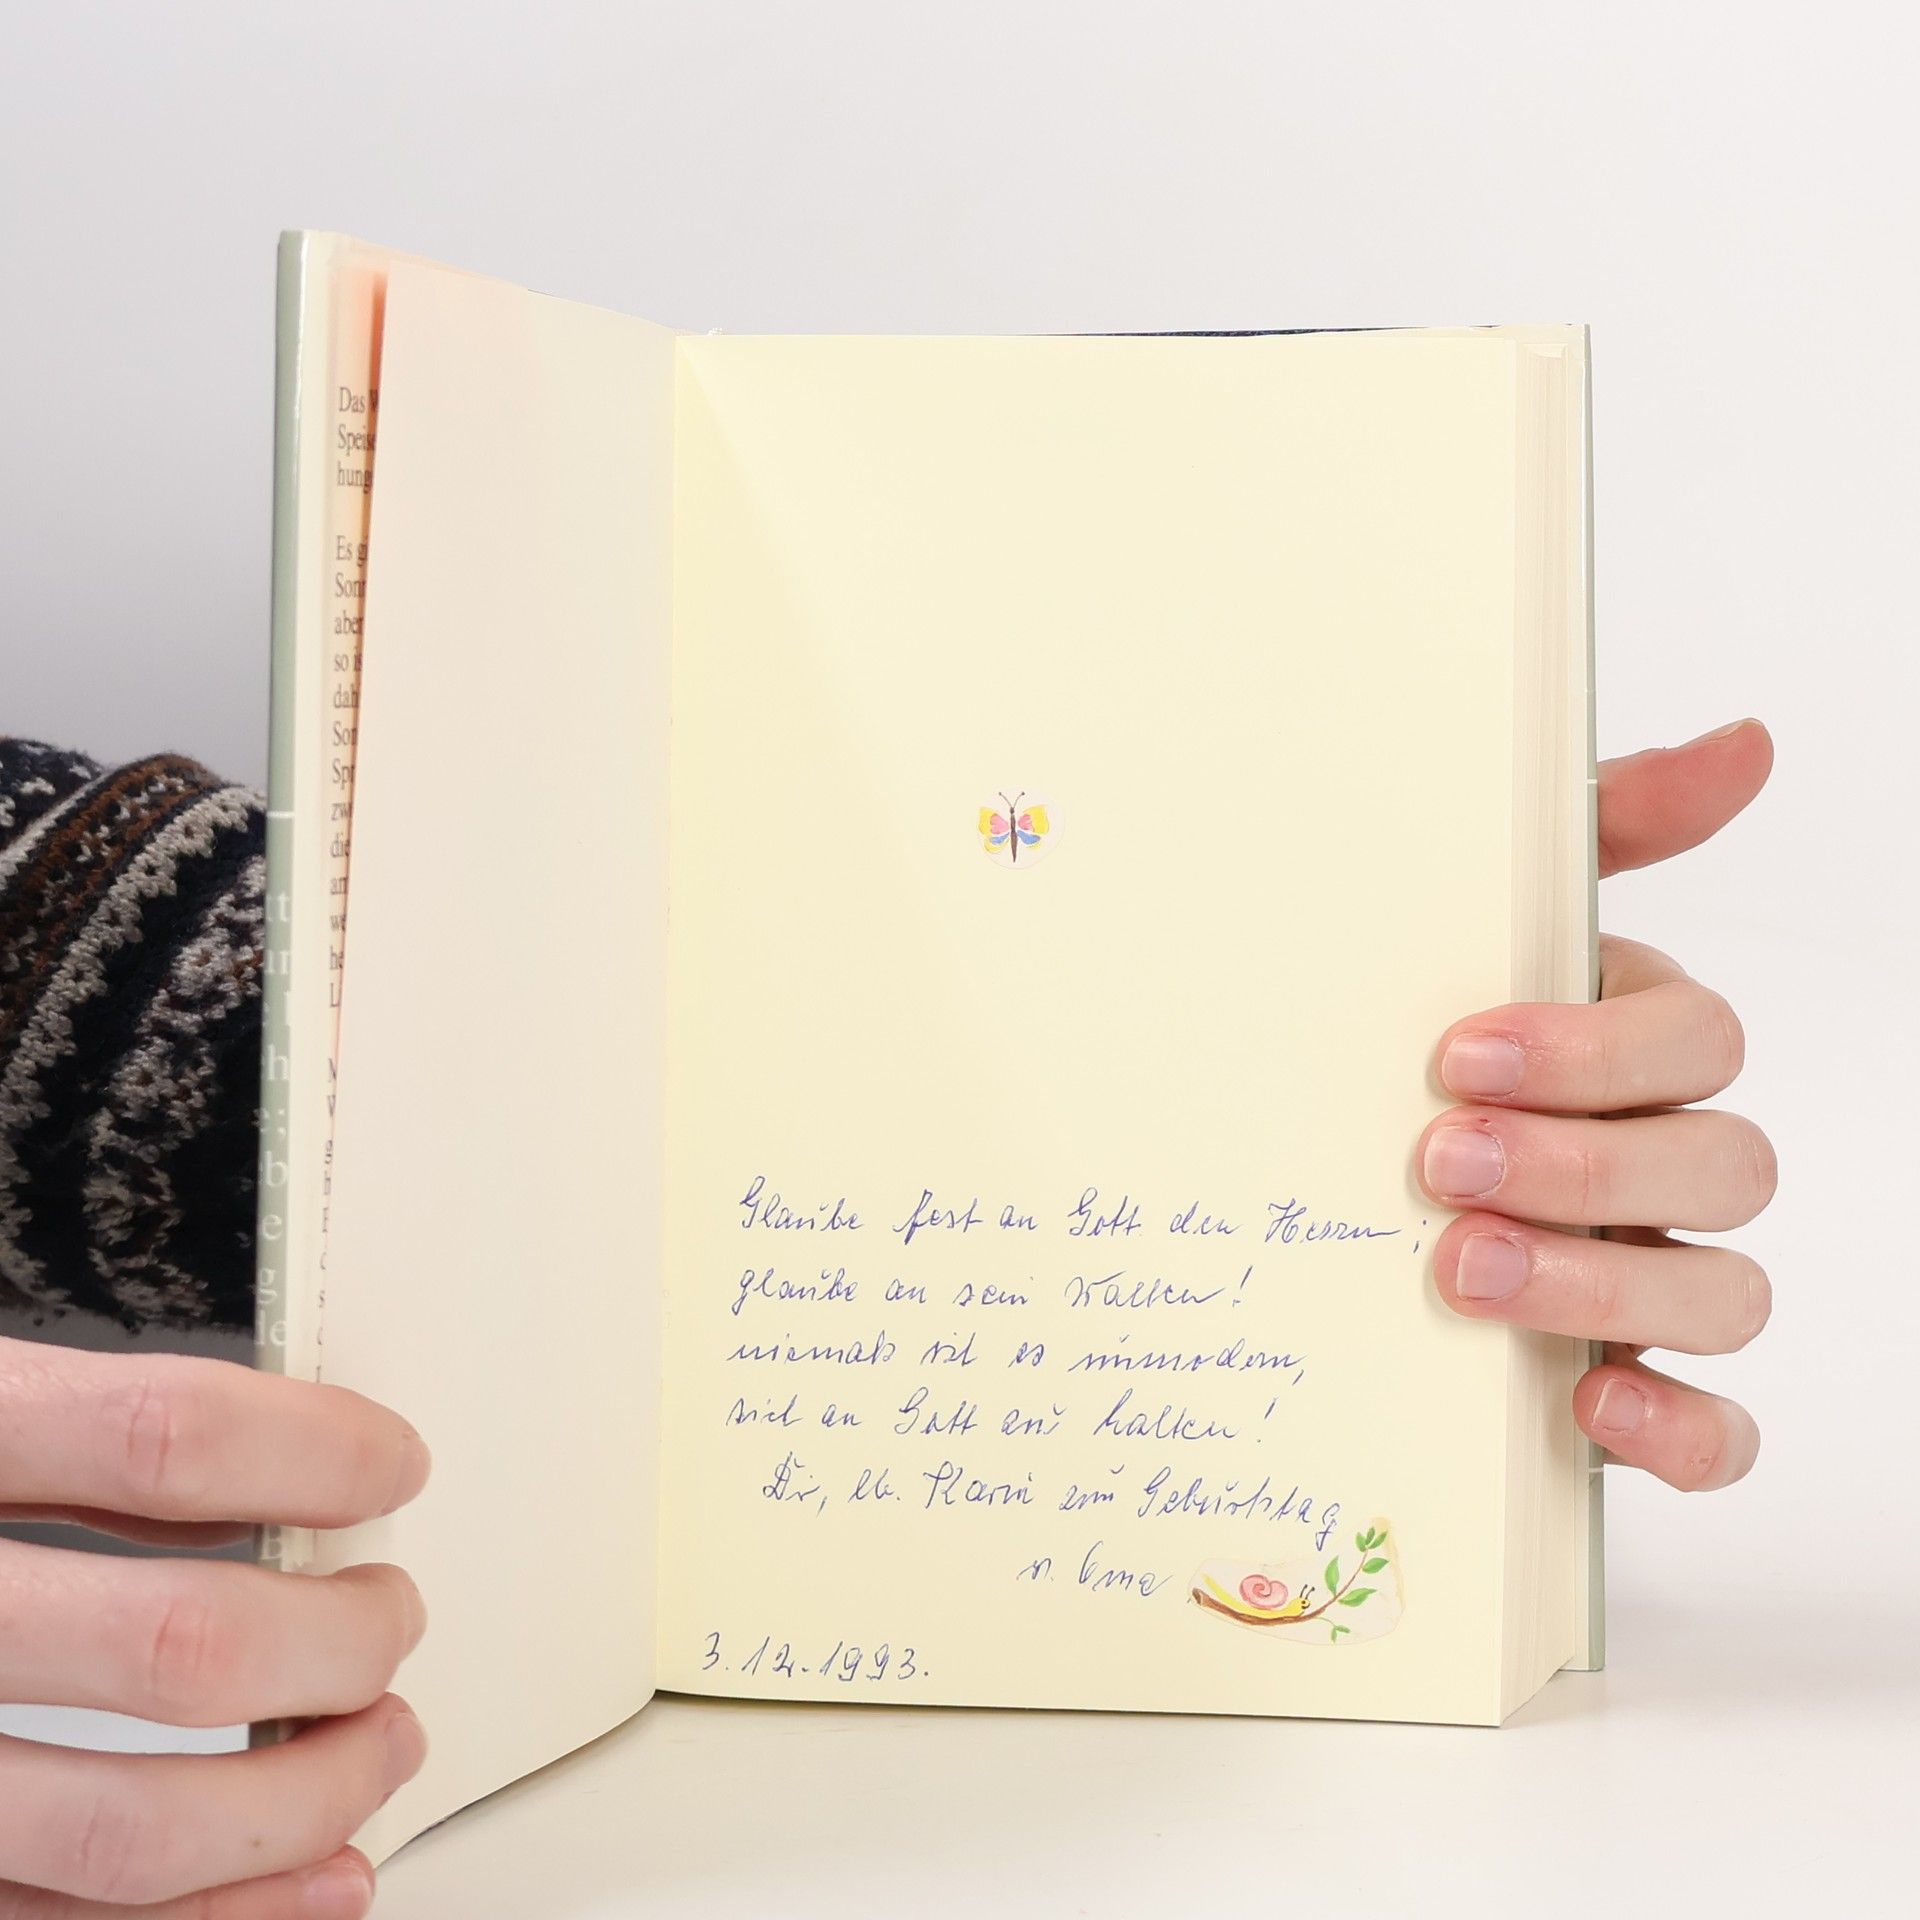 Das
Speise
hung
Es gi
Sonn
aber
so is
dah
Son
Spr
zw
die
an
we
he
Glaube fest an Gott den Herrn;
glaube an sein Walten!
niemals ist es unmodern,
sich an Gott zu halten!
Dir, lb. Karin zum Geburtstag
v. Oma
3.12.1993.